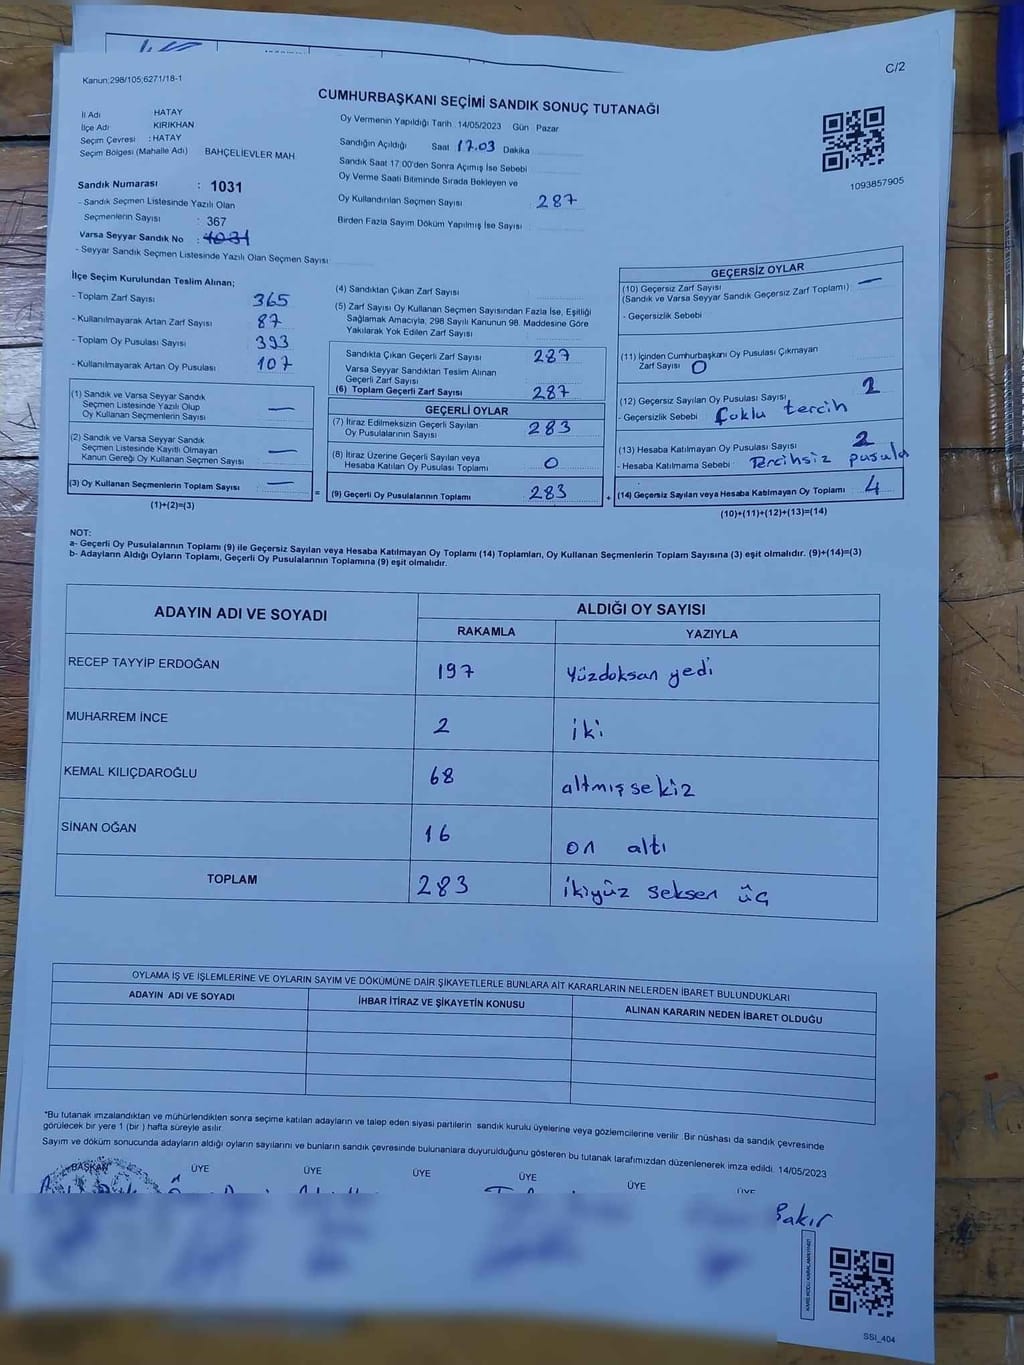 Kanun;298/105;6271/18-1
C/2
CUMHURBAŞKANI SEÇİMİ SANDIK SONUÇ TUTANAĞI
İl Adı HATAY
İlçe Adı KIRIKHAN
Seçim Çevresi : HATAY
Seçim Bölgesi (Mahalle Adı) BAHÇELİEVLER MAH
Sandık Numarası : 1031
- Sandık Seçmen Listesinde Yazılı Olan
Seçmenlerin Sayısı : 367
Varsa Seyyar Sandık No :
- Seyyar Sandık Seçmen Listesinde Yazılı Olan Seçmen Sayısı
Oy Vermenin Yapıldığı Tarih 14/05/2023 Gün Pazar
Sandığın Açıldığı Saat 17.03 Dakika
Sandık Saat 17:00'den Sonra Açımış İse Sebebi
Oy Verme Saati Bitiminde Sırada Bekleyen ve
Oy Kullandırılan Seçmen Sayısı 287
Birden Fazla Sayım Döküm Yapılmış İse Sayısı
1093857905
İlçe Seçim Kurulundan Teslim Alınan;
- Toplam Zarf Sayısı 365
- Kullanılmayarak Artan Zarf Sayısı 87
- Toplam Oy Pusulası Sayısı 393
- Kullanılmayarak Artan Oy Pusulası 107
(1) Sandık ve Varsa Seyyar Sandık
Seçmen Listesinde Yazılı Olup
Oy Kullanan Seçmenlerin Sayısı —
(2) Sandık ve Varsa Seyyar Sandık
Seçmen Listesinde Kayıtlı Olmayan
Kanun Gereği Oy Kullanan Seçmen Sayısı —
(3) Oy Kullanan Seçmenlerin Toplam Sayısı —
(1)+(2)=(3)
=
(4) Sandıktan Çıkan Zarf Sayısı
(5) Zarf Sayısı Oy Kullanan Seçmen Sayısından Fazla İse, Eşitliği
Sağlamak Amacıyla, 298 Sayılı Kanunun 98. Maddesine Göre
Yakılarak Yok Edilen Zarf Sayısı
Sandıkta Çıkan Geçerli Zarf Sayısı 287
Varsa Seyyar Sandıktan Teslim Alınan
Geçerli Zarf Sayısı
(6) Toplam Geçerli Zarf Sayısı 287
GEÇERLİ OYLAR
(7) İtiraz Edilmeksizin Geçerli Sayılan
Oy Pusulalarının Sayısı 283
(8) İtiraz Üzerine Geçerli Sayılan veya
Hesaba Katılan Oy Pusulası Toplamı 0
(9) Geçerli Oy Pusulalarının Toplamı 283
+
GEÇERSİZ OYLAR
(10) Geçersiz Zarf Sayısı —
(Sandık ve Varsa Seyyar Sandık Geçersiz Zarf Toplamı)
- Geçersizlik Sebebi
(11) İçinden Cumhurbaşkanı Oy Pusulası Çıkmayan
Zarf Sayısı 0
(12) Geçersiz Sayılan Oy Pusulası Sayısı 2
- Geçersizlik Sebebi Çoklu tercih
(13) Hesaba Katılmayan Oy Pusulası Sayısı 2
- Hesaba Katılmama Sebebi Tercihsiz pusula
(14) Geçersiz Sayılan veya Hesaba Katılmayan Oy Toplamı 4
(10)+(11)+(12)+(13)=(14)
NOT:
a- Geçerli Oy Pusulalarının Toplamı (9) ile Geçersiz Sayılan veya Hesaba Katılmayan Oy Toplamı (14) Toplamları, Oy Kullanan Seçmenlerin Toplam Sayısına (3) eşit olmalıdır. (9)+(14)=(3)
b- Adayların Aldığı Oyların Toplamı, Geçerli Oy Pusulalarının Toplamına (9) eşit olmalıdır.
ADAYIN ADI VE SOYADI ALDIĞI OY SAYISI
RAKAMLA YAZIYLA
RECEP TAYYİP ERDOĞAN 197 Yüzdoksan yedi
MUHARREM İNCE 2 iki
KEMAL KILIÇDAROĞLU 68 altmışsekiz
SİNAN OĞAN 16 on altı
TOPLAM 283 ikiyüz seksen üç
OYLAMA İŞ VE İŞLEMLERİNE VE OYLARIN SAYIM VE DÖKÜMÜNE DAİR ŞİKAYETLERLE BUNLARA AİT KARARLARIN NELERDEN İBARET BULUNDUKLARI
ADAYIN ADI VE SOYADI İHBAR İTİRAZ VE ŞİKAYETİN KONUSU ALINAN KARARIN NEDEN İBARET OLDUĞU
*Bu tutanak imzalandıktan ve mühürlendikten sonra seçime katılan adayların ve talep eden siyasi partilerin sandık kurulu üyelerine veya gözlemcilerine verilir. Bir nüshası da sandık çevresinde
görülecek bir yere 1 (bir) hafta süreyle asılır.
Sayım ve döküm sonucunda adayların aldığı oyların sayılarını ve bunların sandık çevresinde bulunanlara duyurulduğunu gösteren bu tutanak tarafımızdan düzenlenerek imza edildi. 14/05/2023
BAŞKAN ÜYE ÜYE ÜYE ÜYE ÜYE ÜYE
Bakır
SSI_404